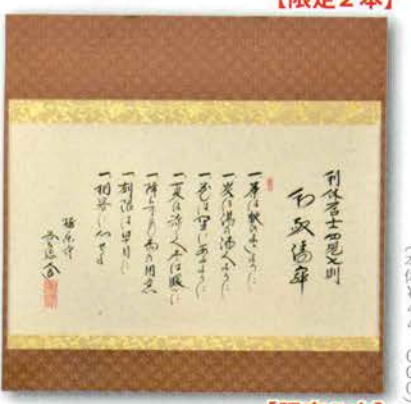 【限定2本】
利休居士四規七則
和敬清寂
一茶は服のよきように
一炭は湯の沸くように
一花は野にあるように
一夏は涼しく冬は暖に
一降らずとも雨の用意
一刻限は早目に
一相客に心せよ